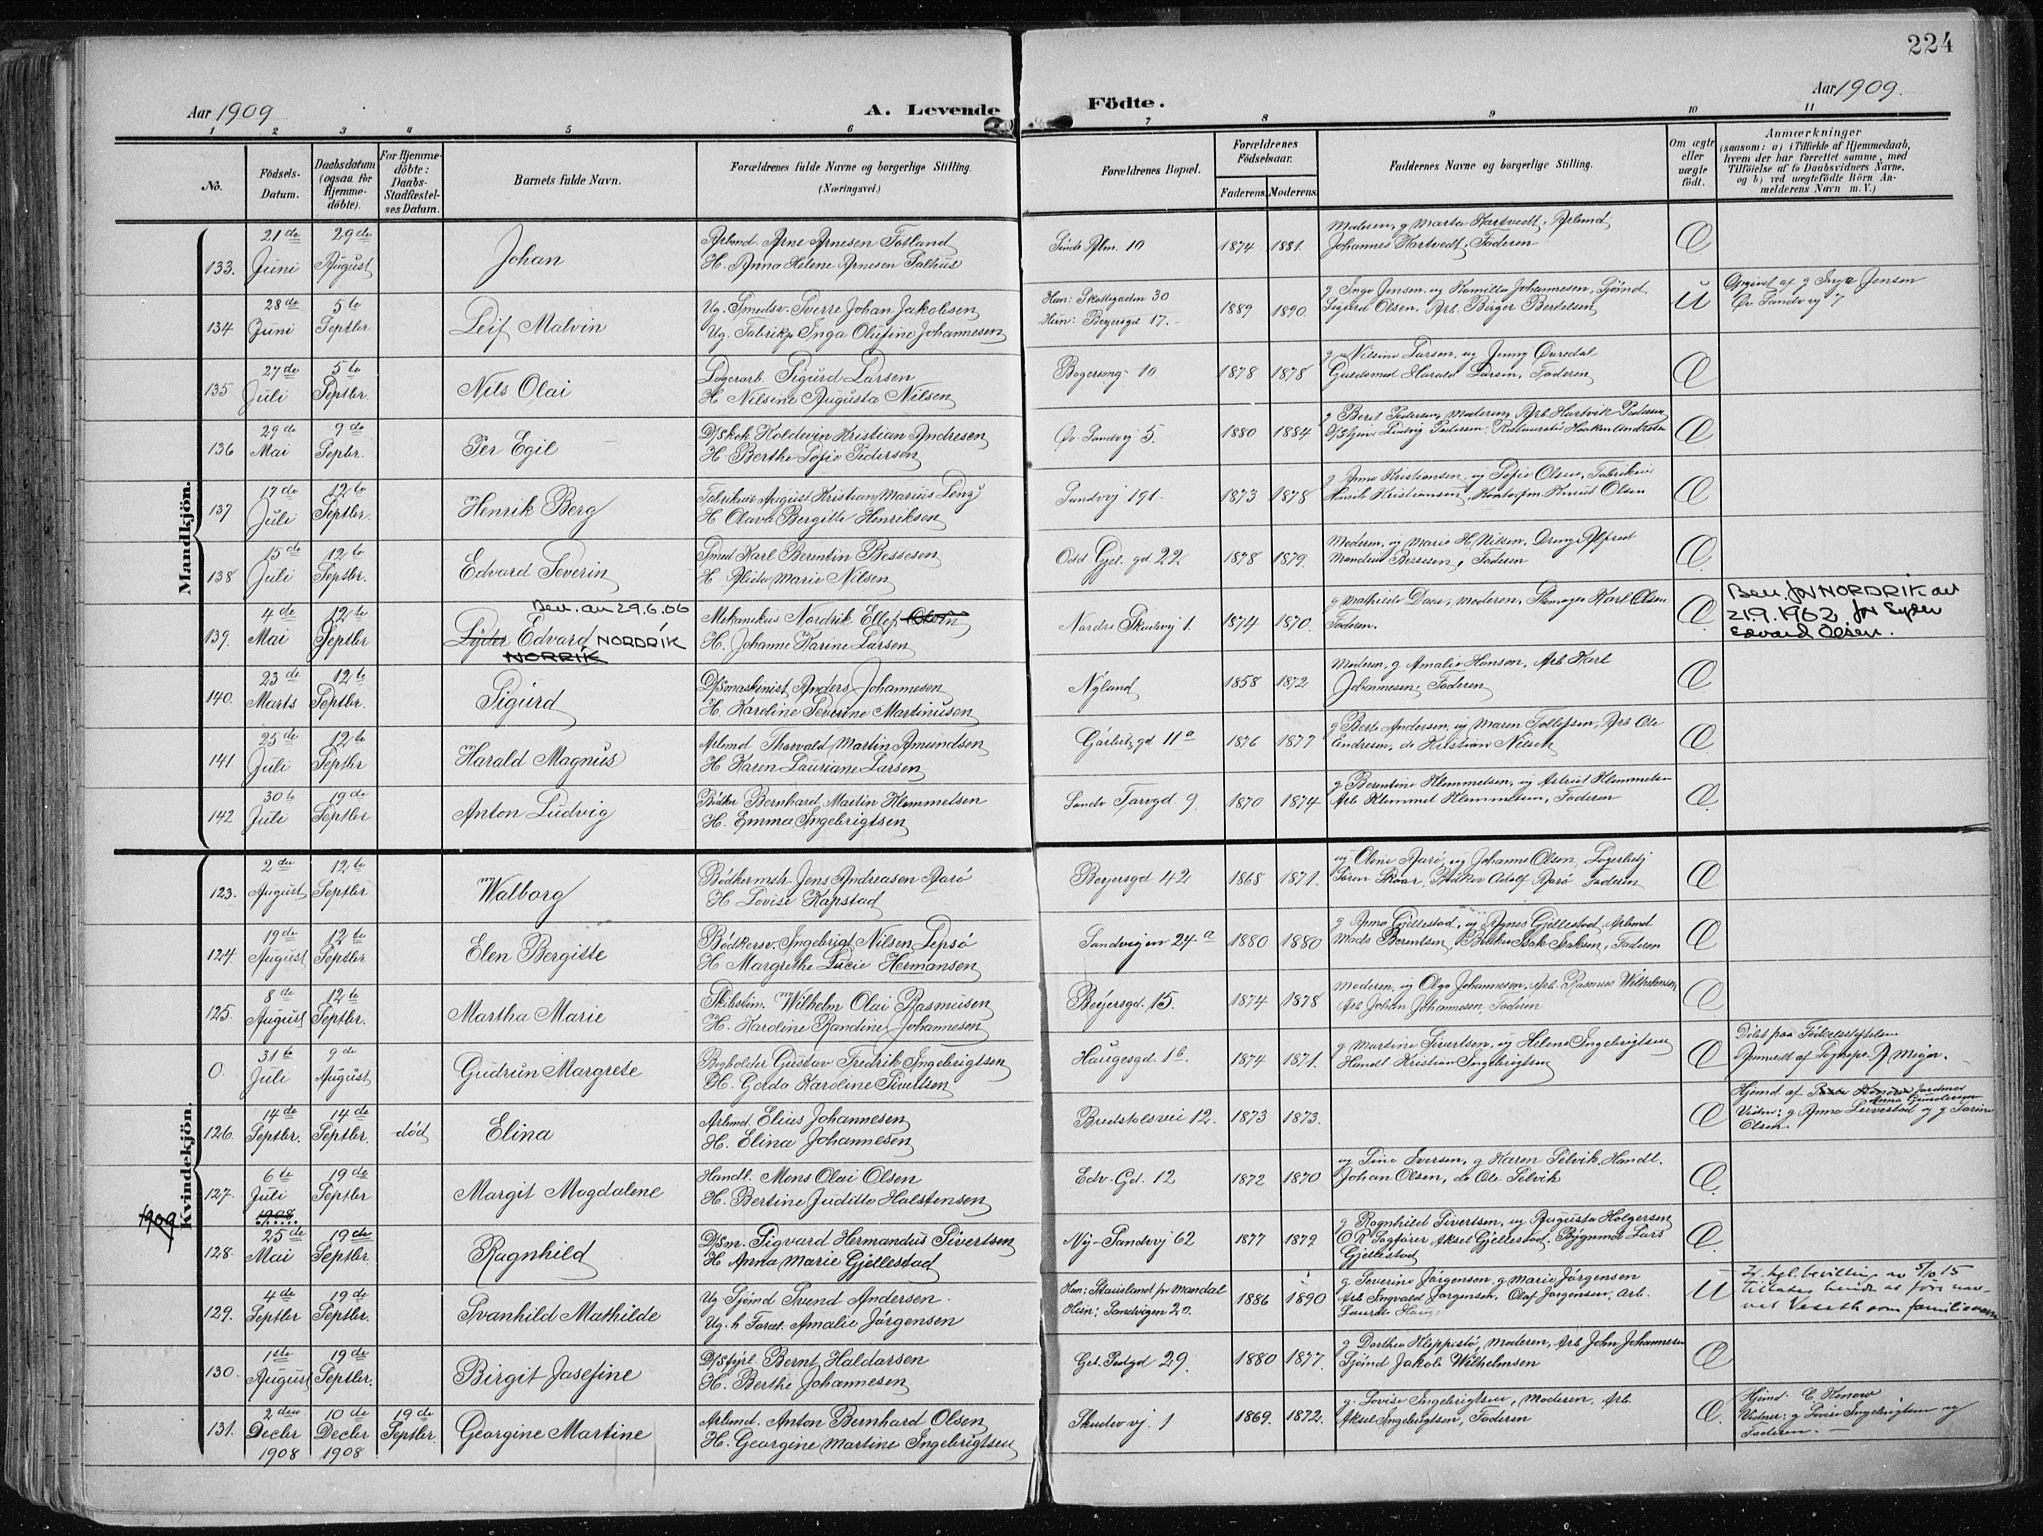 224
Aar 1909
A. Levende
Födte.
Aar 1909.
1 2 3 4 5 6 7 8 9 10 11
No.
Födsels-
Datum.
Daabsdatum
(ogsaa for
Hjemme-
döbte).
For Hjemme-
döbte:
Daabs-
Stadfæstel-
ses Datum.
Barnets fulde Navn.
Forældrenes fulde Navne og borgerlige Stilling.
(Næringsvei.)
Forældrenes Bopæl.
Forældrenes
Födselsaar.
Faderens. Moderens.
Faddernes Navne og borgerlige Stilling.
Om ægte
eller
uægte
födt.
Anmærkninger
(saasom: a) i Tilfælde af Hjemmedaab,
hvem der har forrettet samme, med
Tilföielse af to Daabsvidners Navne,
og b) ved uægtefödte Börn An-
melderens Navn m. V.)
Mandkjön.
133. 21de Juni 29de August Johan
Arbmd. Arne Arnesen Totland
H. Anna Helene Arnesen
10 1874 1881.
Moderen, g Marta Hartvedt, Arbmd.
Johannes Hartvedt, Faderen
Œ
134 28de Juni 5te Septbr Leif Malvin
Ug. Smedsv. Sverre Johan Jakobsen
Ug. Fabrikp Inga Olufine Johannesen
Han: Skostrgaden 30
Hun: Beyersgd 17.
1889 1890.
g Inga Jensen og Kamilla Johannesen, Sjömd
Sigurd Olsen, Arb. Birger Bertelsen
U
Opgivet af g Inga Jensen
Øv Sandvg 7
135 27de Juli 5te Septbr. Nils Olai
Lagerarb. Sigurd Larsen
H Nilsine Augusta Nilsen
10 1878 1878
g Nilsine Larsen, og Jenny Øvredal
Guldsmed Harald Larsen, Faderen
Œ
136 29de Mai 9de Septbr. Per Egil
D/Skok Koldevin Kristian Andresen
H. Berthe Sofie Pedersen
Øv Sandvj 5. 1880 1884
g Beret Pedersen, Moderen, Arb. Hartvik Pedersen
Ludvig Pedersen, Haaken Andresen
Œ
137 17de Juli 12te Septbr. Henrik Berg
August Kristian Marius
H Olava Bergitte Henriksen
Sandvj 191. 1873 1878
g Anna Kristiansen og Sofie Olsen,
Henrik Kristiansen, Knud Olsen
Œ
138 15de Juli 12te Septbr. Edvard Severin
Smed Karl Berentin Bessesen
H. Alida Marie Nilsen
Odd Gjel. gd 22 1878 1879.
Moderen, og Marie H. Nilsen, Dreng Alfred
Bessesen, Faderen
Œ
139. 4de Mai 12te Septbr. Lyder Edvard NORDRIK
Bev. av 29.6.06
NORRIK
Mekanikus Nordrik Ellef Olsen
H. Johanne Karine Larsen
Nordre Skudevj 1 1874 1870.
g Mathilde Daae, Moderen, Karl Olsen
Faderen.
Œ
Bev. for NORDRIK av
21.9.1962 for Lyder
Edvard Olsen.
140. 23de Marts 12te Septbr. Sigurd
D/Smaskinist Anders Johannesen
H. Karoline Severine Martinusen
Nyland 1858 1872
Moderen, g Amalie Hansen, Arb. Karl
Johannesen, Faderen
Œ
141 25de Juli 12te Septbr Harald Magnus
Arbmd Thorvald Martin Amundsen
H. Karen Lauriane Larsen
11a 1876 1877
g Berte Andersen, og Maren Tollefsen, Arb Ole
Endresen, do Kristian Nilsen
Œ
142 30te Juli 19de Septbr Anton Ludvig
Bödker Bernhard Martin Klemmetsen
H. Emma Ingebrigtsen
Sandv Torvgd. 9. 1870 1874
g Berentine Klemmetsen, og Astrid Klemmetsen
Arb. Klemmet Klemmetsen, Faderen
Œ
Kvindekjön.
123. 2den August 12te Septbr Walborg
Bödkermstr. Jens Andreasen Aarö
H Lovise Kapstad
Beyersgd 42 1868 1871.
ug Oline Aarö, og Johanne Olsen,
Sören Skaar, Bödker Adolf Aarö Faderen
Œ
124 19de August 12te Septbr Elen Bergitte
Bödkersv. Ingebrigt Nilsen Lepsö
H Margrethe Lucie Hermansen
Sandvigen 24a 1880 1880
g Anna Gjellestad, og Agnes Gjellestad, Arbmd
Mads Berentsen, Bödker Isak Isaksen, Faderen
Œ
125. 8de August 12te Septbr. Martha Marie
Skibstöm. Wilhelm Olai Rasmusen
H. Karoline Randine Johannesen
Beyersgd. 15. 1874 1878
Moderen, og Olga Johannesen, Arb. Rasmus Wilhelmsen,
Arb. Johan Johannesen, Faderen
Œ
0. 31te Juli 9de August Gudrun Margrete
Bogholder Gustav Fredrik Ingebrigtsen
H. Gerda Karoline Sivertsen
Haugesgd. 1b. 1874 1871.
g Martine Sivertsen, og Helene Ingebrigtsen
Handl. Kristian Ingebrigtsen
Œ
Döbt paa Födselsstiftelsen
Anmeldt af Sognepr. A. Meyer.
126. 14de Septbr. 14de Septbr. död Elina
Arbmd. Elias Johannesen
H. Elina Johannesen
Bredstolsvei 12. 1873 1873.
Œ
Hjemd af Jordmor
Anna Gundersen
Vidner: g Anna Leivestad og g Tarine
Olsen.
127. 6te Juli 1908 19de Septbr Margit Magdalene
Handl. Mons Olai Olsen
H. Bertine Juditte Halstensen
Edv-Gd. 12 1872 1870
ug Sine Iversen, g Karen Selvik, Handl.
Johan Olsen, do Ole Selvik
Œ
1909
128. 25de Mai 19de Septbr Ragnhild
D/Sm. Sigvard Hermandus Sivertsen
H Anna Marie Gjellestad
Ny-Sandvj 62 1877 1879
g Ragnhild Sivertsen, og Augusta Holgersen
O R Sagförer Aksel Gjellestad. Bygnmst Lars
Gjellestad
Œ
129. 4de Septbr 19de Septbr Svanhild Mathilde
Ug Sjömd Svend Andersen
Ug. h Amalie Jörgensen
Han: Stausland pr Mandal
Hun: Sandvigen 20.
1886 1890
g Severine Jörgensen, g Marie Jörgensen
Arb Ingvald Jörgensen, Olaf Jörgensen, Arb.
Laurits
U
bevilling av 5/10 15
tillates hende at före nav-
net Veseth som familienavn
130. 1ste August 19de Septbr. Birgit Josefine
D/Sfyrl. Bernt Haldorsen
H. Berthe Johannesen
29. 1880 1877.
g Dorthea Kleppestö, Moderen, Arb John Johannesen
Sjömd Jakob Wilhelmsen
Œ
131. 2den Decbr 1908 10de Decbr 1908 19de Septbr. Georgine Martine
Arbmd. Anton Bernhard Olsen
H. Georgine Martine Ingebrigtsen
Skudevj 1 1869. 1872.
g. Lovise Ingebrigtsen, Moderen, Arb.
Aksel Ingebrigtsen, Faderen
Œ
Hjemd: C. Konow
Vidner: g Lovise Ingebrigtsen og
Faderen.